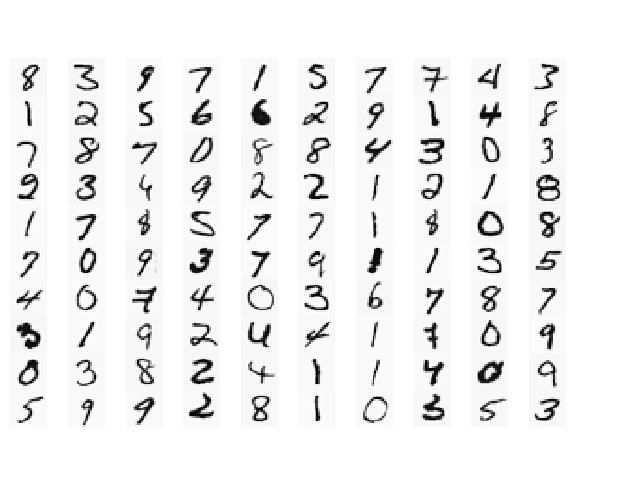 8 3 9 7 1 5 7 7 4 3
1 2 5 6 6 2 9 1 4 8
7 8 7 0 8 8 4 3 0 3
9 3 4 9 2 2 1 2 1 8
1 7 8 5 7 7 1 8 0 8
7 0 9 3 7 9 1 1 3 5
4 0 7 4 0 3 6 7 8 7
3 1 9 2 4 4 1 7 0 9
0 3 8 2 4 1 1 4 0 9
5 9 9 2 8 1 0 3 5 3